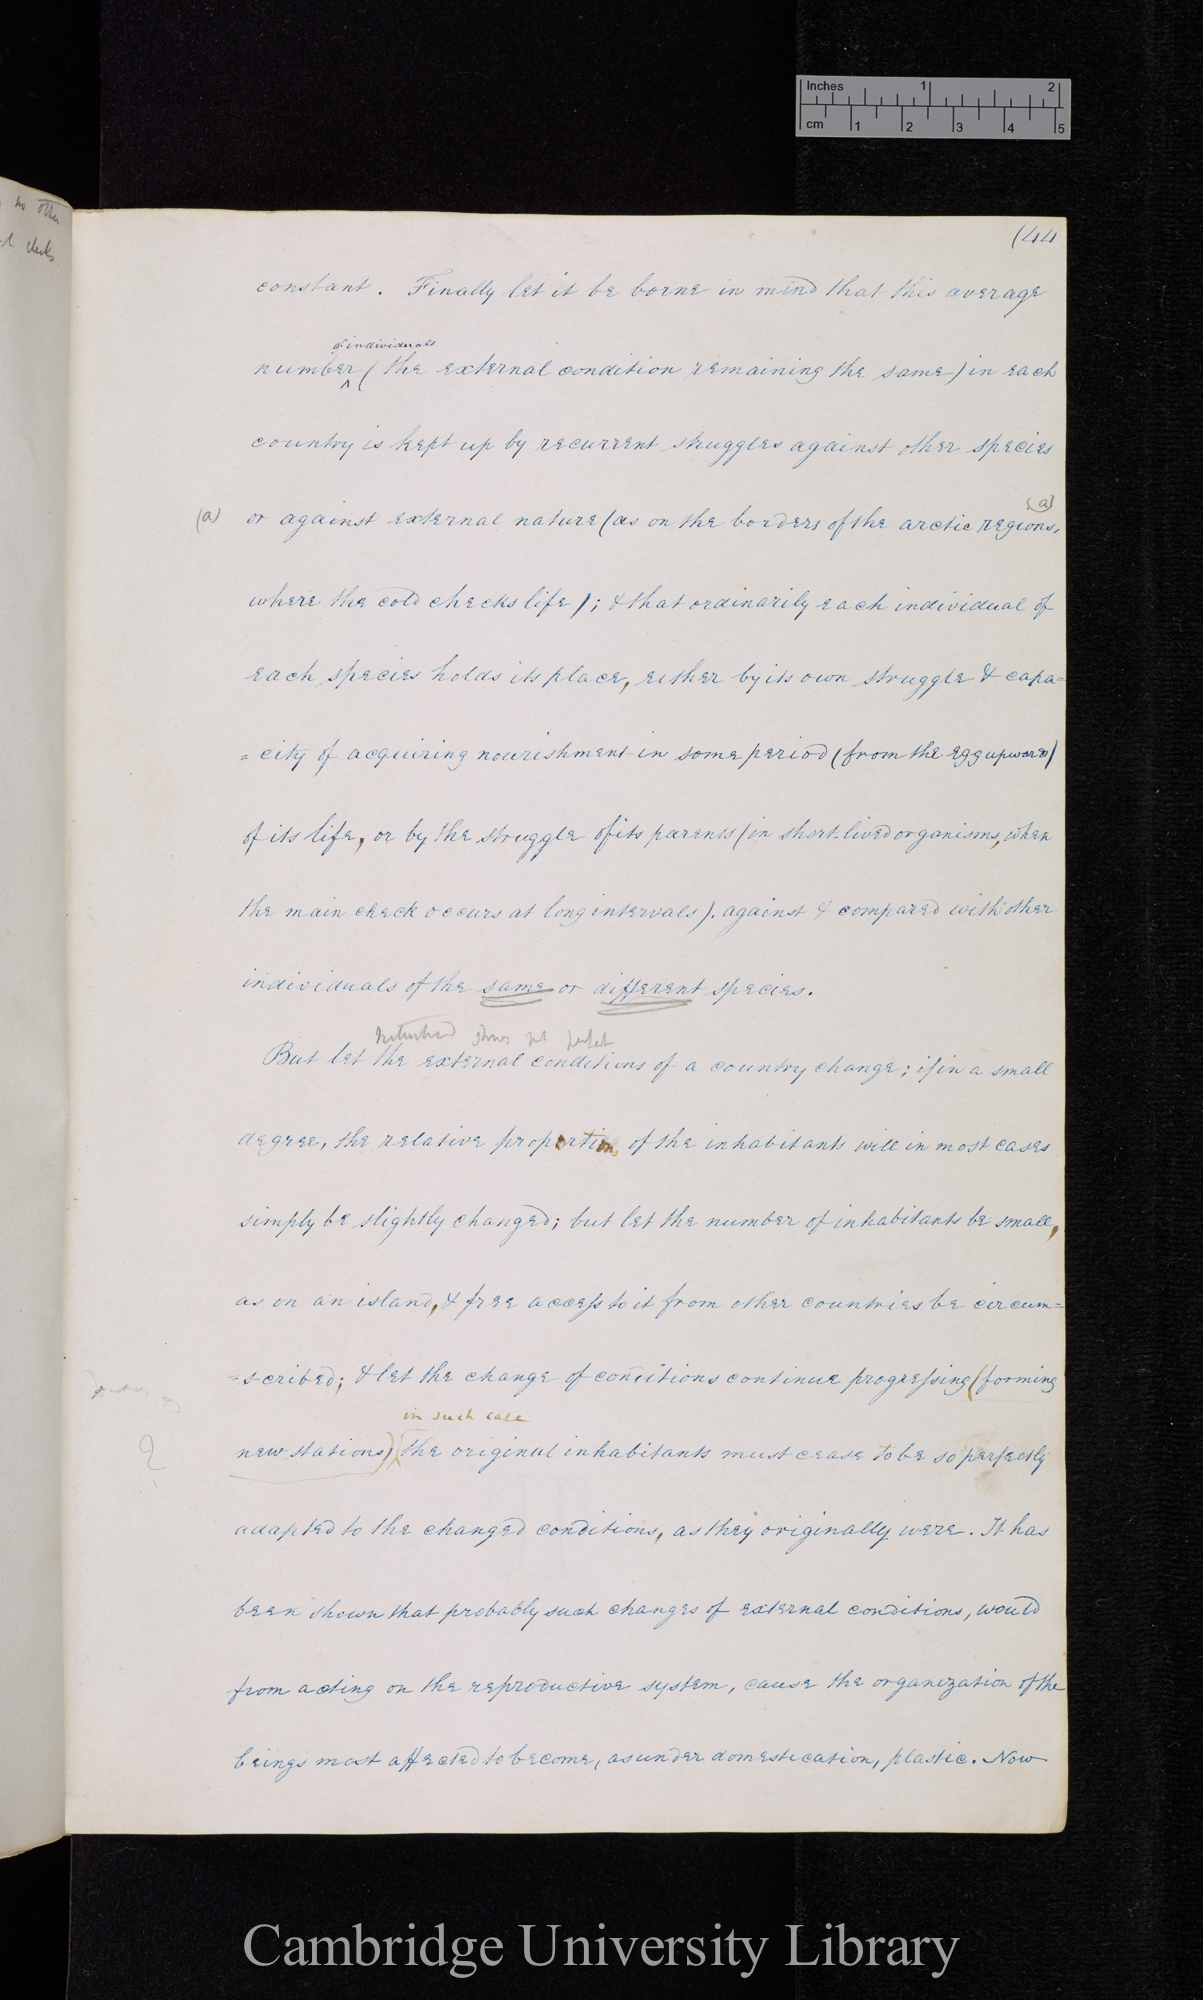 Inches 1 2
cm 1 2 3 4 5
no other
checks
(44
constant. Finally let it be borne in mind that this average
of individuals
number ^ (the external condition remaining the same) in each
country is kept up by recurrent struggles against other species
(a)
(a) or against external nature (as on the borders of the arctic regions,
where the cold checks life); & that ordinarily each individual of
each species holds its place, either by its own struggle & capa=
=city of acquiring nourishment in some period (from the egg upwards)
of its life, or by the struggle of its parents (in short-lived organisms, when
the main check occurs at long intervals). against & compared with other
individuals of the same or different species.
shows not perfect
But let the external conditions of a country change; if in a small
degree, the relative proportions of the inhabitants will in most cases
simply be slightly changed; but let the number of inhabitants be small,
as on an island, & free access to it from other countries be circum=
=scribed; & let the change of conditions continue progressing (forming
in such case
new stations) the original inhabitants must cease to be so perfectly
?
adapted to the changed conditions, as they originally were. It has
been shown that probably such changes of external conditions, would
from acting on the reproductive system, cause the organization of the
beings most affected to become, as under domestication, plastic. Now
Cambridge University Library